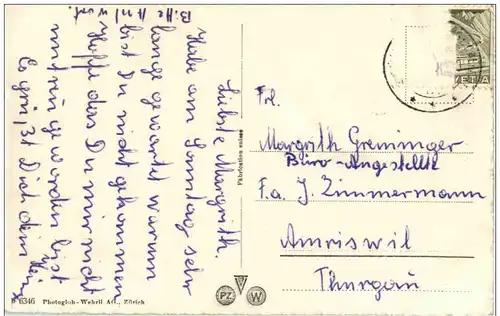 Liebste Margrith.
Habe am Sonntag sehr
lange gewartet warum
bist Du nicht gekommen
Hoffe das Du mir nicht
untreu geworden bist
Es grüsst Dich dein Heinz
Bitte Antwort.
Frl.
Margrith Greminger
Büro-Angestellte
F.a. J. Zimmermann
Amriswil
Thurgau
Fabrication suisse
PZ W
6346 Photoglob-Wehrli AG., Zürich